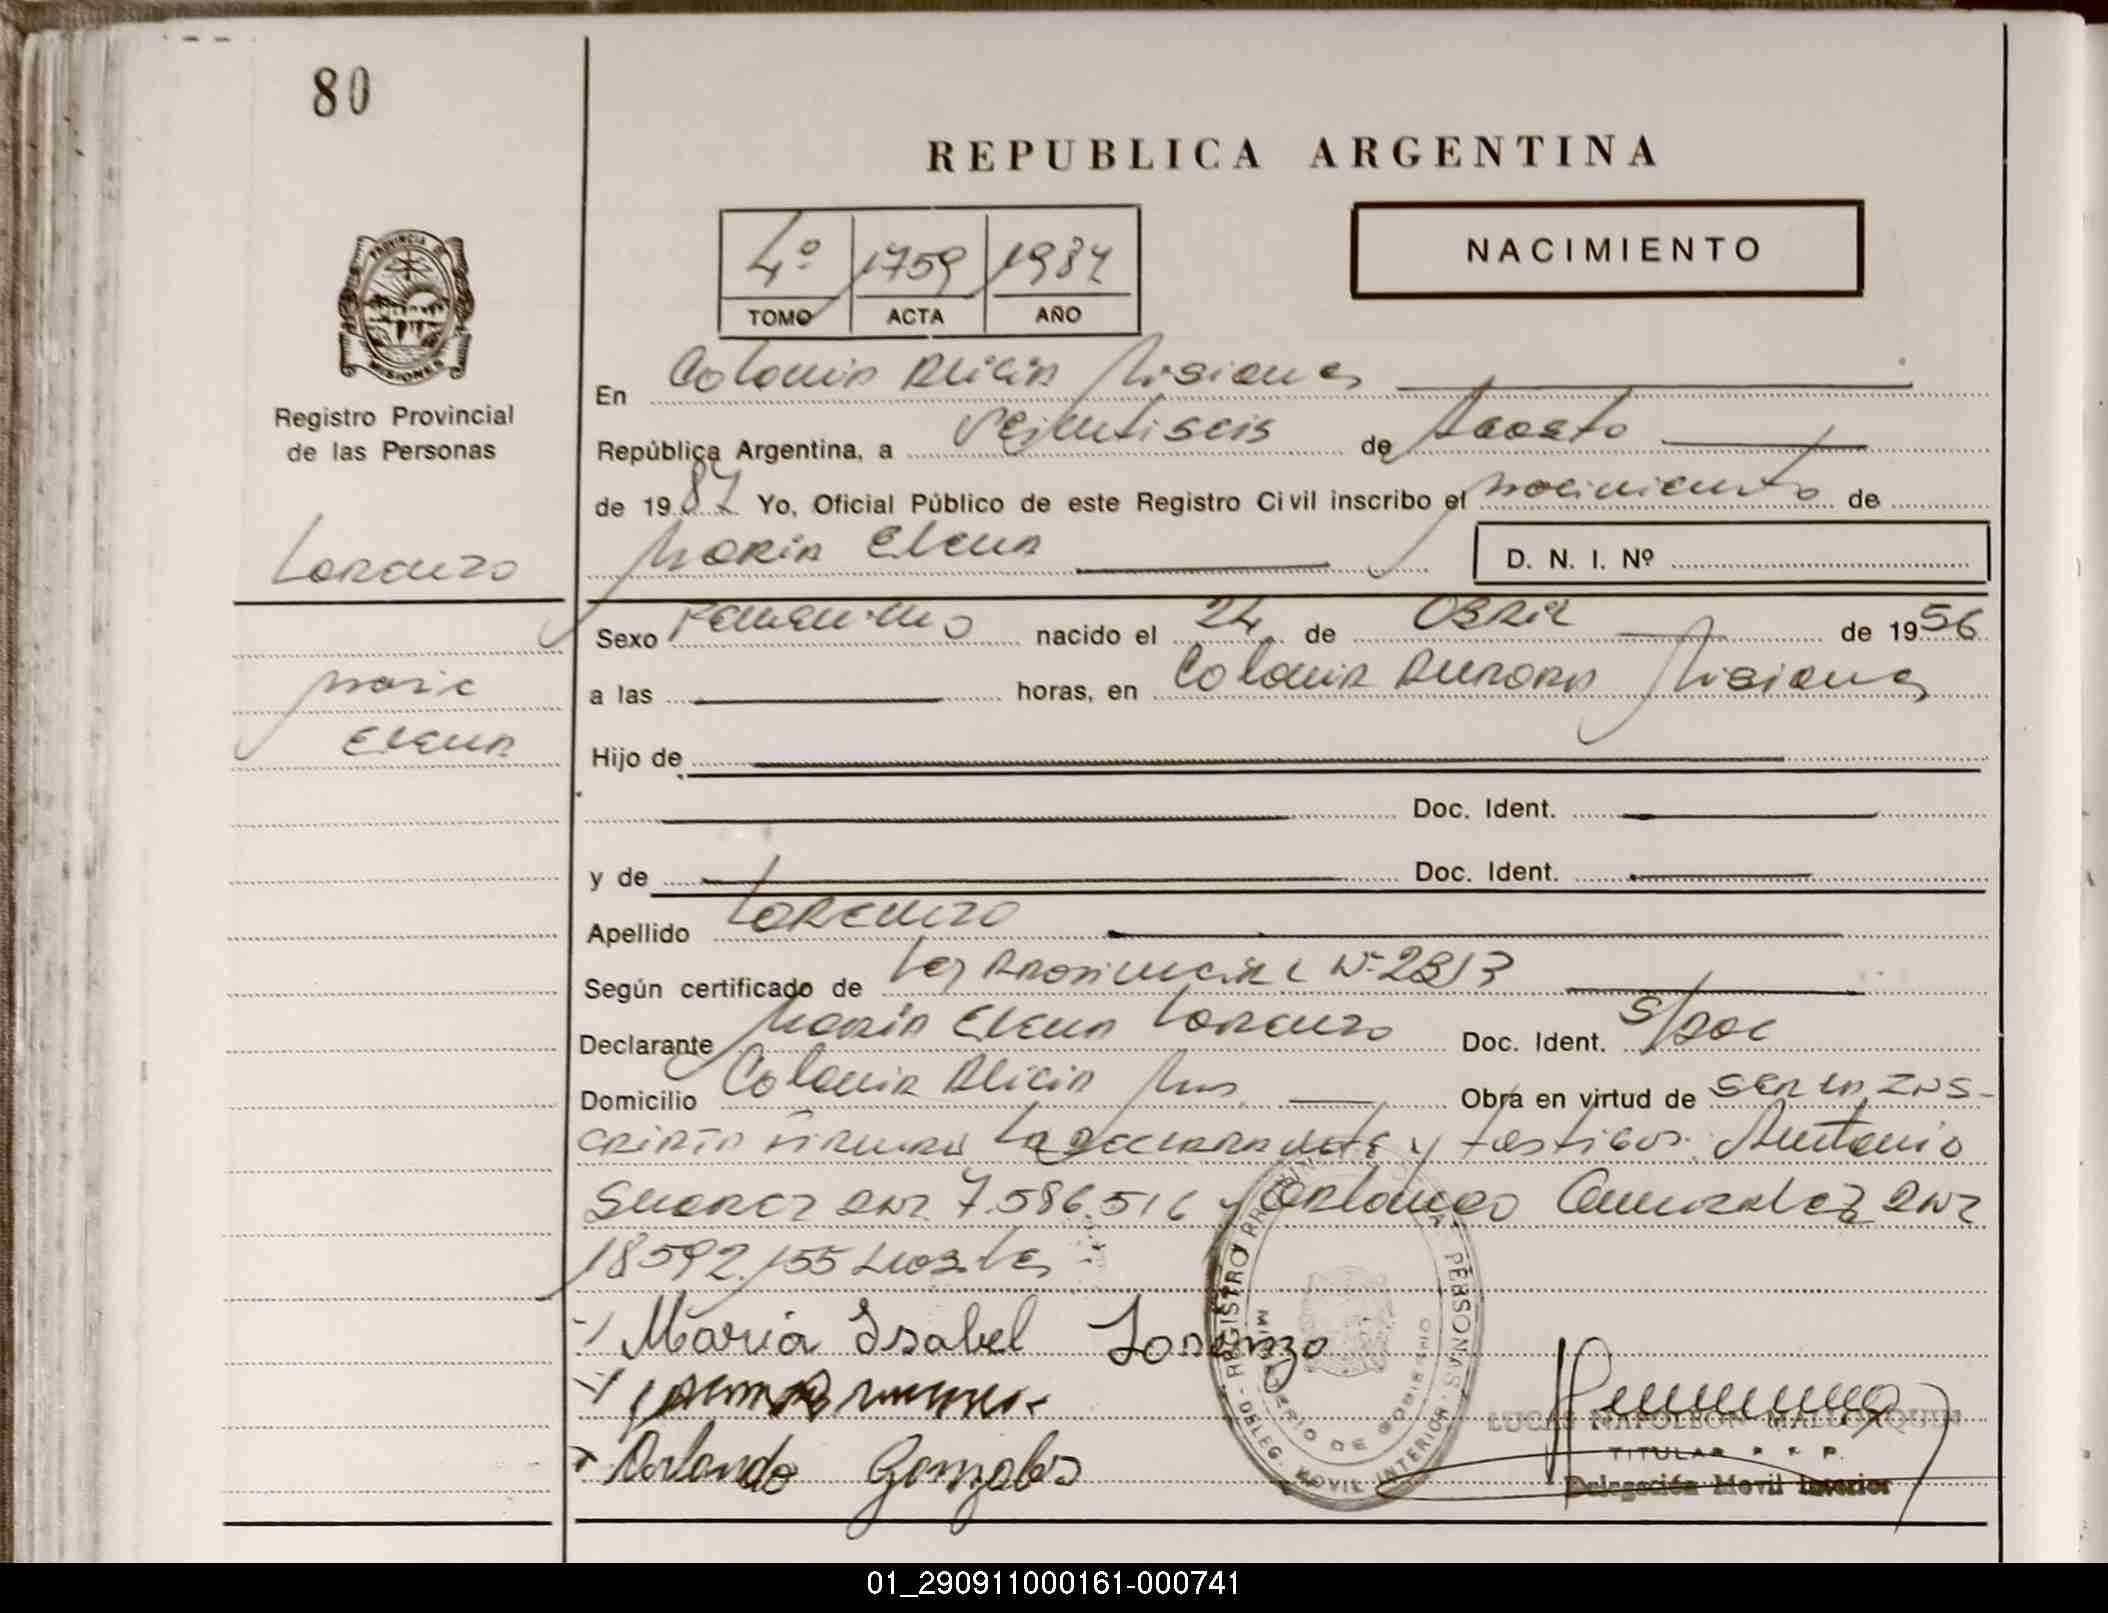 80
REPUBLICA ARGENTINA
4º 1759 1987
TOMO ACTA AÑO
NACIMIENTO
PROVINCIA DE MISIONES
Registro Provincial
de las Personas
Lorenzo
Maria
Elena
En Colonia Alicia Misiones
República Argentina, a Veintiseis de Agosto
de 1987 Yo, Oficial Público de este Registro Civil inscribo el nacimiento de
Maria Elena D. N. I. Nº
Sexo Femenino nacido el 24 de Abril de 1956
a las horas, en Colonia Aurora Misiones
Hijo de
Doc. Ident.
y de Doc. Ident.
Apellido Lorenzo
Según certificado de Ley Provincial Nº 2313
Declarante Maria Elena Lorenzo Doc. Ident. S/Doc
Domicilio Colonia Alicia Mns. Obra en virtud de ser la ins-
cripta firman la declarante y testigos: Antonio
Suarez DNI 7.586.516 y Orlando Gonzalez DNI
18592.155
María Isabel Lorenzo
Orlando Gonzales
REGISTRO PROVINCIAL DE LAS PERSONAS
MINISTERIO DE GOBIERNO
DELEG. MOVIL INTERIOR
LUCAS NAPOLEON MALLORQUIN
TITULAR R. P. P.
Delegación Movil Interior
01_290911000161-000741